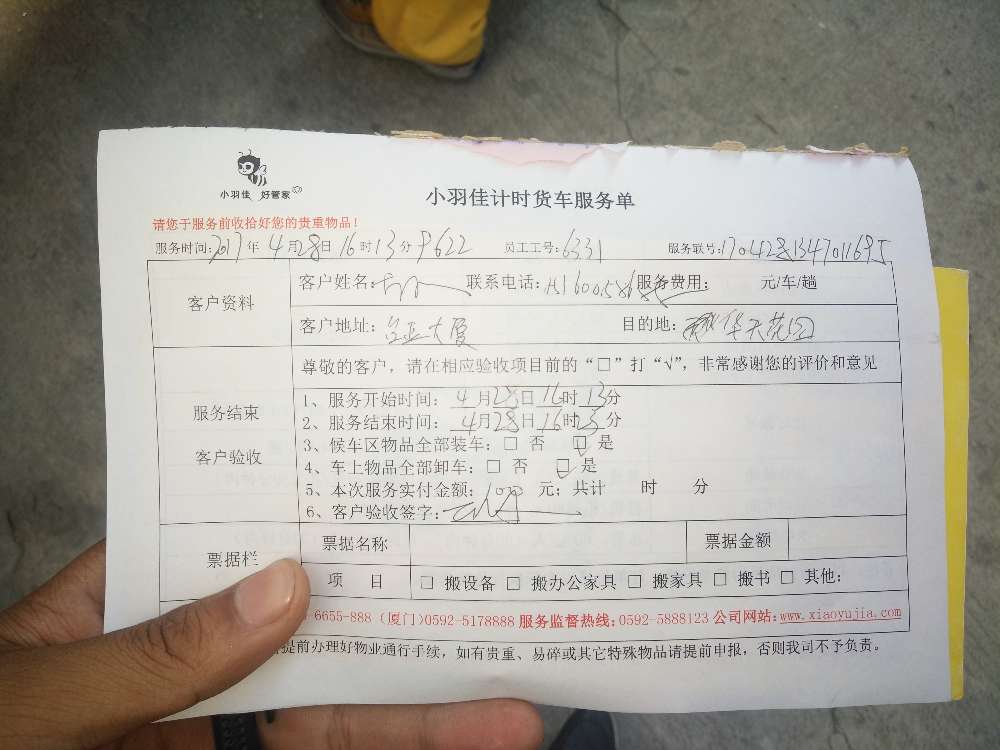 小羽佳 好管家
小羽佳计时货车服务单
请您于服务前收拾好您的贵重物品！
服务时间：2017年4月28日16时13分 9622 员工工号：6331 服务联号：1704281347011695
客户资料
客户姓名： 联系电话： 服务费用： 元/车/趟
客户地址： 大厦 目的地： 华天花园
尊敬的客户，请在相应验收项目前的“□”打“√”，非常感谢您的评价和意见
服务结束
客户验收
1、服务开始时间：4月28日16时13分
2、服务结束时间：4月28日16时25分
3、候车区物品全部装车：□ 否 □ 是
4、车上物品全部卸车：□ 否 □ 是
5、本次服务实付金额： 元；共计 时 分
6、客户验收签字：
票据栏
票据名称 票据金额
项 目 □ 搬设备 □ 搬办公家具 □ 搬家具 □ 搬书 □ 其他：
6655-888 (厦门)0592-5178888 服务监督热线：0592-5888123 公司网站：www.xiaoyujia.com
提前办理好物业通行手续，如有贵重、易碎或其它特殊物品请提前申报，否则我司不予负责。